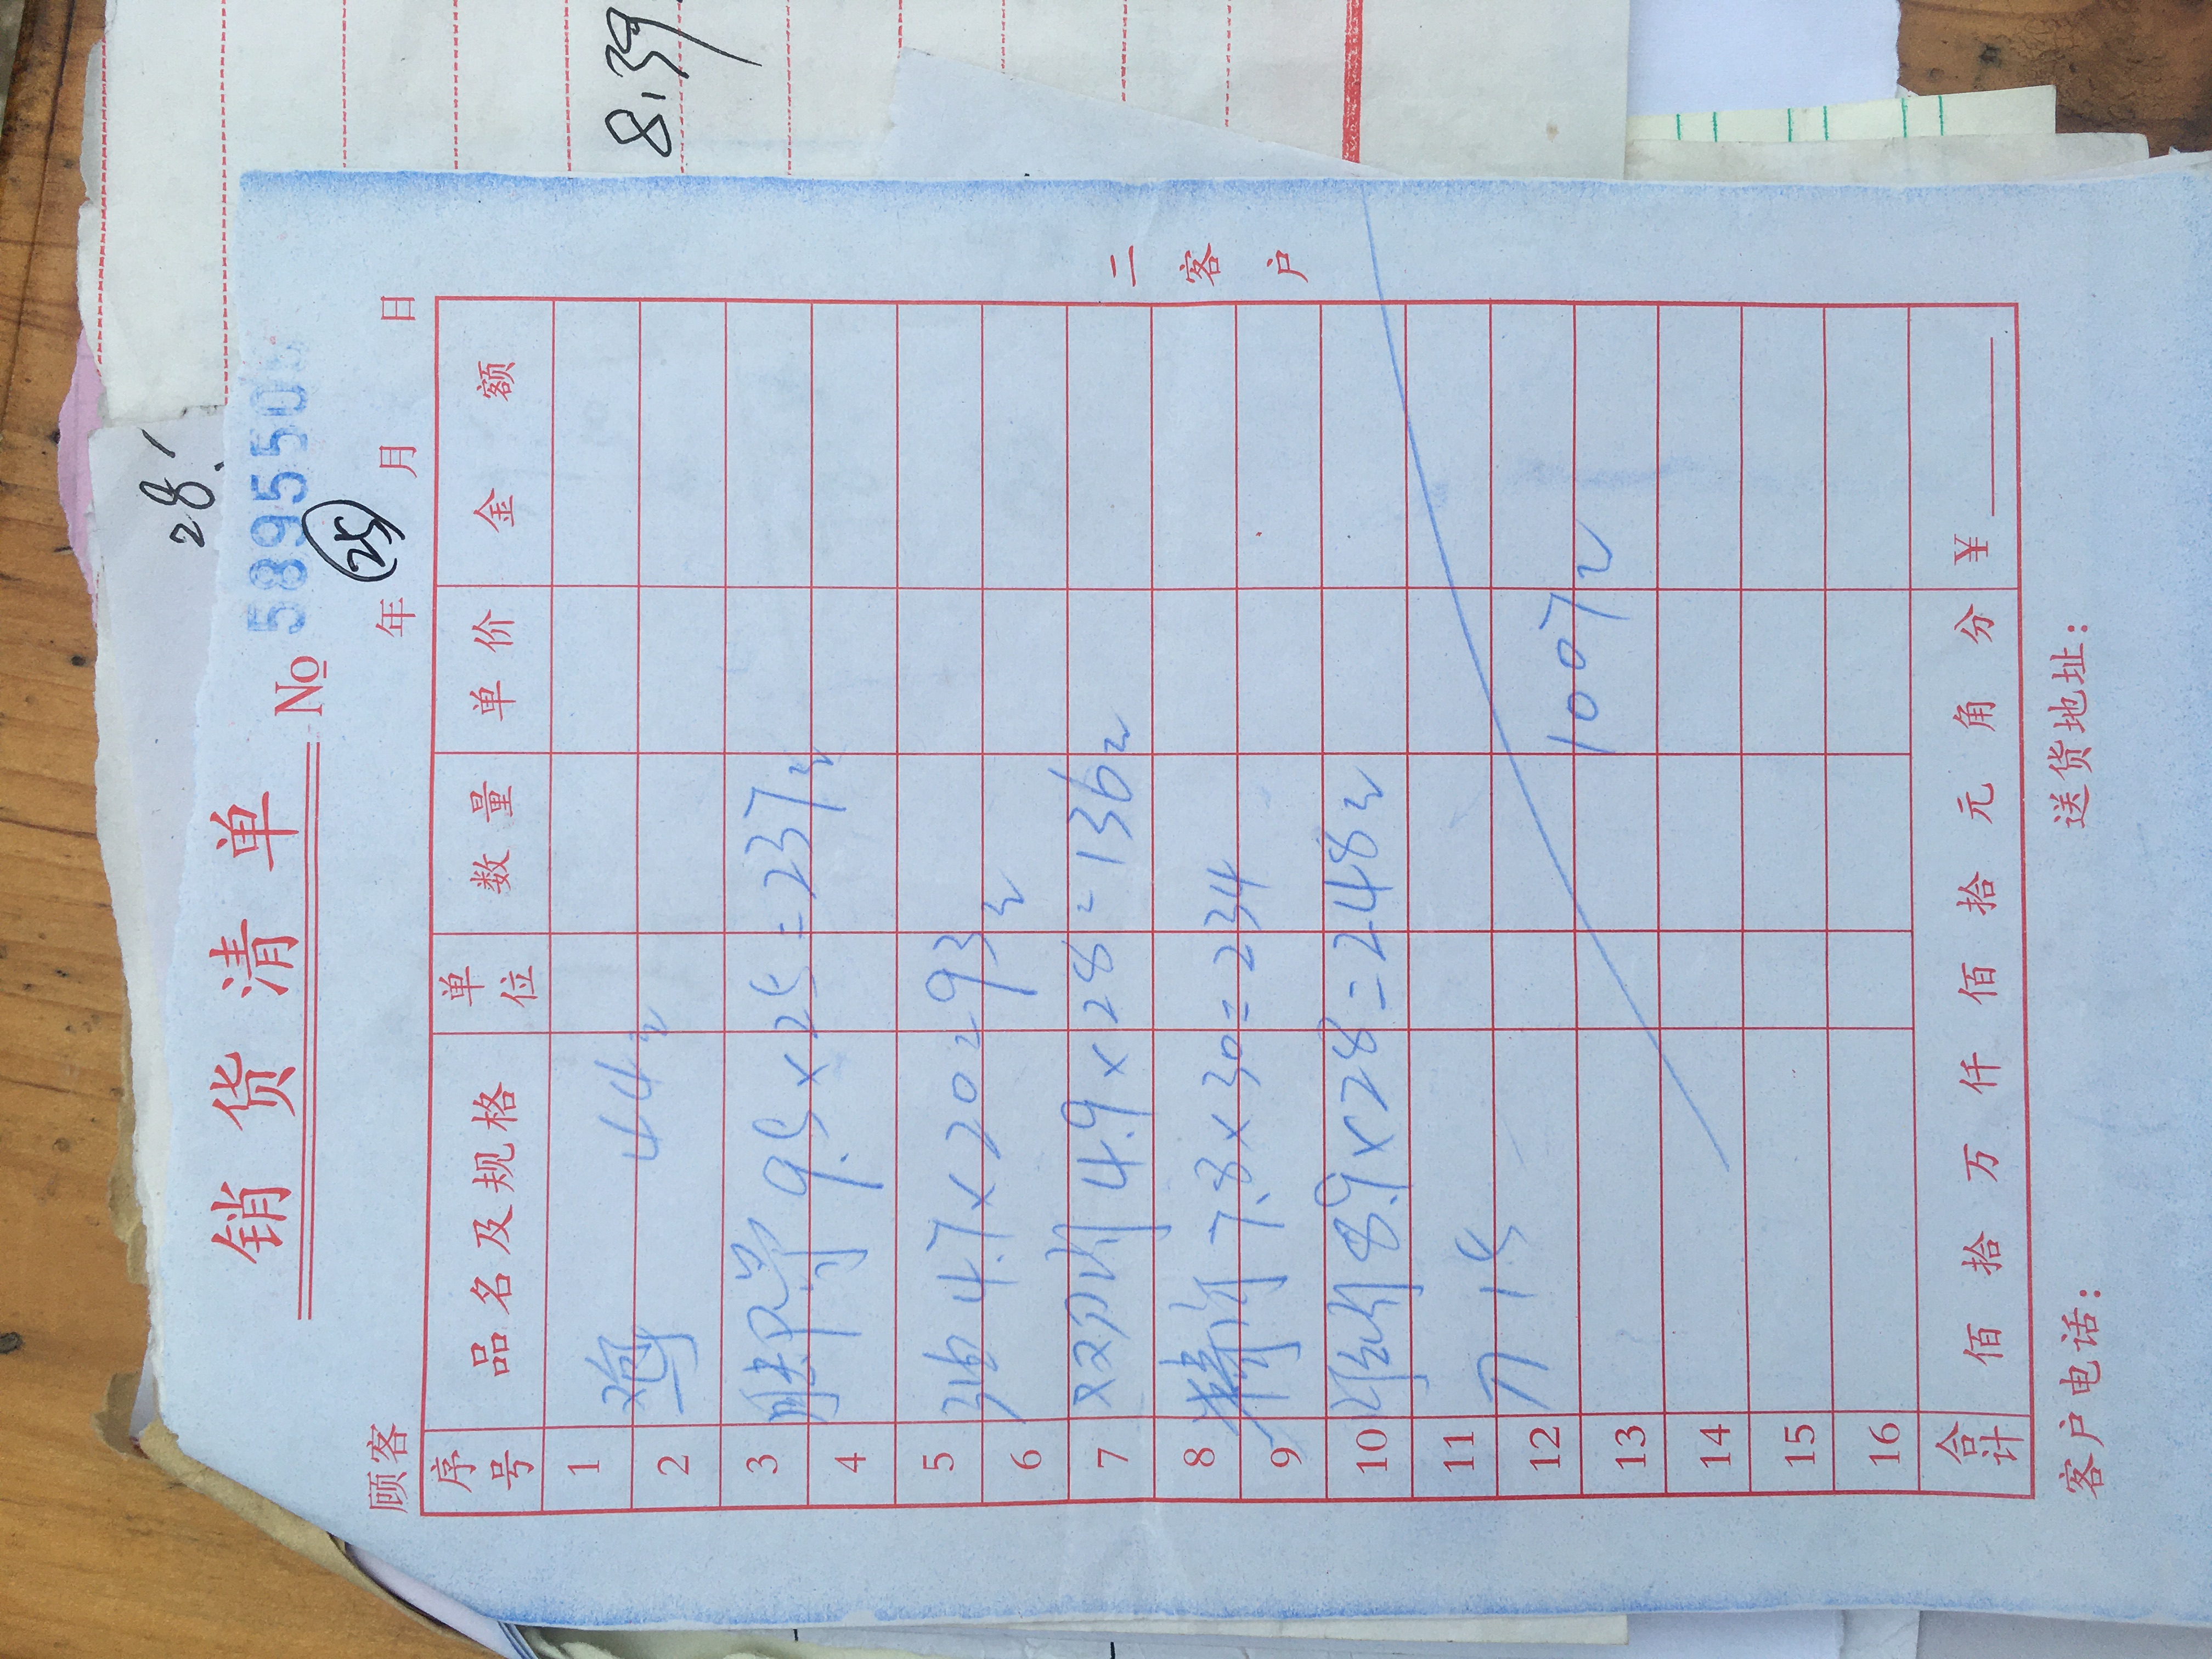 28.
销货清单
No 5895505
顾客 年 月 日
25
序号 品名及规格 单位 数量 单价 金额
1
鸡 44元
2
3
脚骨 9.5×25=237元
4
5
油 4.7×20=93元
6
7 双刀肉 4.9×28=136元
8
精肉 7.8×30=234
9
10 肉 8.9×28=248元
11
刀 15
12
1007元
13
14
15
16
合计 佰拾万仟佰拾元角分 ¥
客户电话: 送货地址:
二客户
8.39